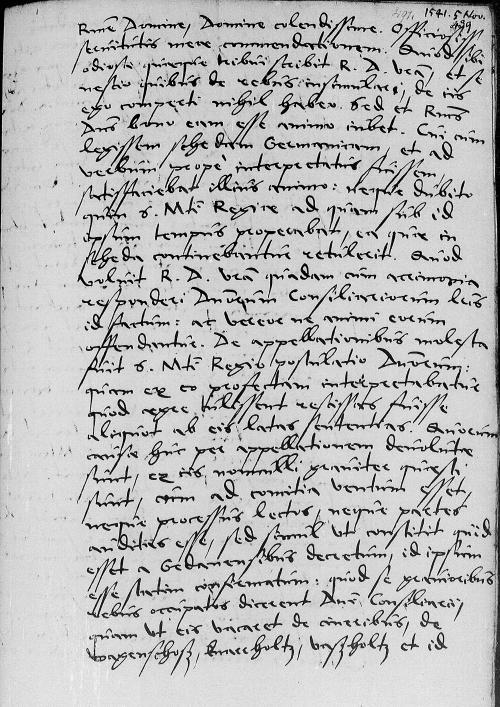 1541. 5 Nov.
499
Rme Domine, Domine colendissime. Officiosiss
servitutis mee commendationem. Quod sibi
odiose quaeque tribui scribit R. D. Vra, et se
nescio quibus de rebus insimulari, de iis
ego comperti nihil habeo. Sed et Rmus
Dns bono eam esse animo iubet. Cui cum
legissem schedam Germanicam, et ad
verbum prope interpretatus fuissem,
satisfaciebat illius animo: neque dubito
quin S. Mti Regiae ad quam sub id
ipsum tempus properabat, ea quae in
scheda continebantur retulerit. Quod
voluit R. D. Vra quadam cum acrimonia
responderi Dnorum Consiliariorum lris
id factum: ac vereor ne animi eorum
offendantur. De appellationibus molesta
fuit S. Mti Regiae postulatio Dnorum:
quam ex eo profectam interpretabatur
quod aegre tulissent rescissas fuisse
aliquot ab eis latas sententias. Quorum
causae huc per appellationem devolutae
sunt, ex iis nonnulli graviter questi
sunt, cum ad comitia ventum esset,
neque processus lectos, neque partes
auditas esse, sed simul ut constitit quid
esset a Gedanensibus decretum, id ipsum
esse statim confirmatum: quod se gravioribus
rebus occupatos dicerent Dni Consiliarii,
quam ut eis vacaret de cineribus, de
wagenschosz, knarholtz, vaszholtz et id